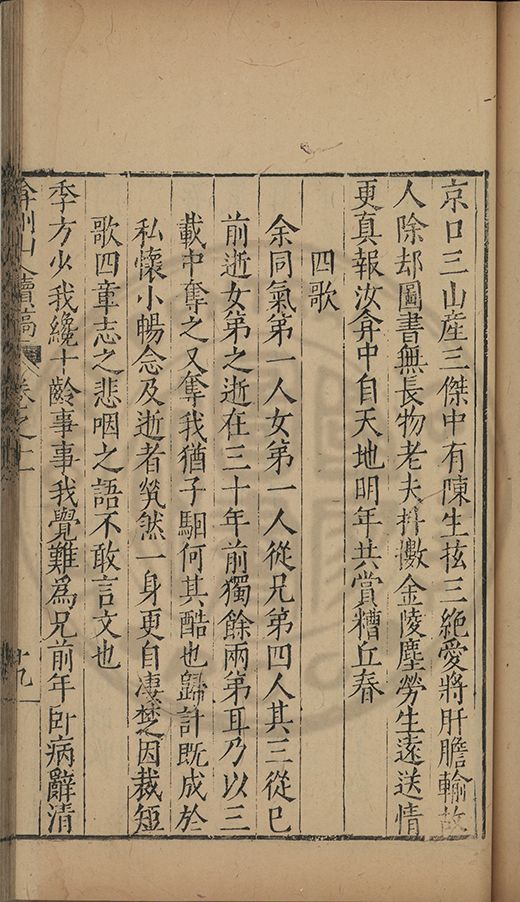 京口三山産三傑中有陳生挾三絶愛將肝膽輸故
人除却圖書無長物老夫抖擻金陵塵勞生遠送情
更真報汝弇中自天地明年共賞糟丘春
四歌
余同氣第一人女第一人從兄第四人其三從已
前逝女第之逝在三十年前獨餘兩第耳乃以三
載中奪之又奪我猶子駰何其酷也歸計既成於
私懷小暢念及逝者煢然一身更自凄楚因裁短
歌四章志之悲咽之語不敢言文也
季方少我纔十齡事事我覺難爲兄前年卧病辭清
弇州山人續稿 卷之十一 十九